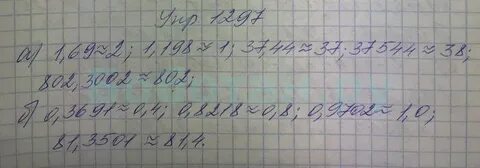 Упр 1297
а) 1,69≈2; 1,198≈1; 37,44≈37; 37544≈38;
802,3002≈802;
б) 0,3691≈0,4; 0,8218≈0,8; 0,9702≈1,0;
81,3501≈81,4.